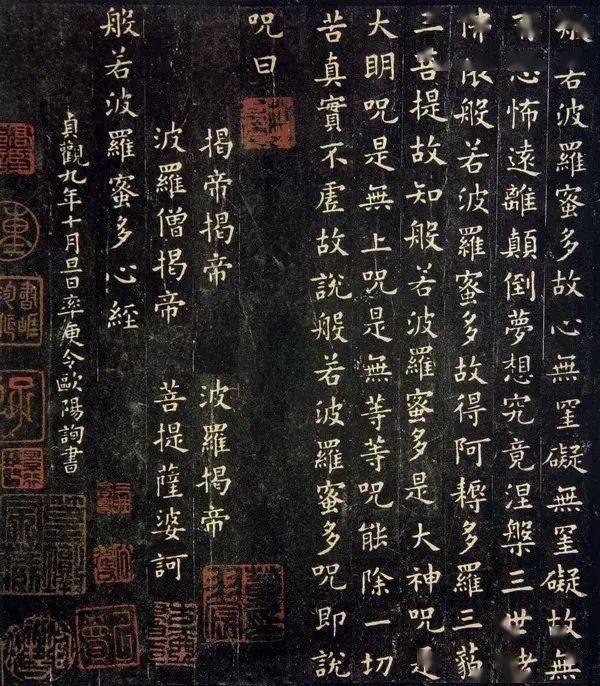 般若波羅蜜多故心無罣礙無罣礙故無
恐怖遠離顛倒夢想究竟涅槃三世
佛依般若波羅蜜多故得阿耨多羅三藐
三菩提故知般若波羅蜜多是大神呪是
大明呪是無上呪是無等等呪能除一切
苦真實不虛故說般若波羅蜜多呪即說
呪曰
揭帝揭帝 波羅揭帝
波羅僧揭帝 菩提薩婆訶
般若波羅蜜多心經
貞觀九年十月旦日率更令歐陽詢書